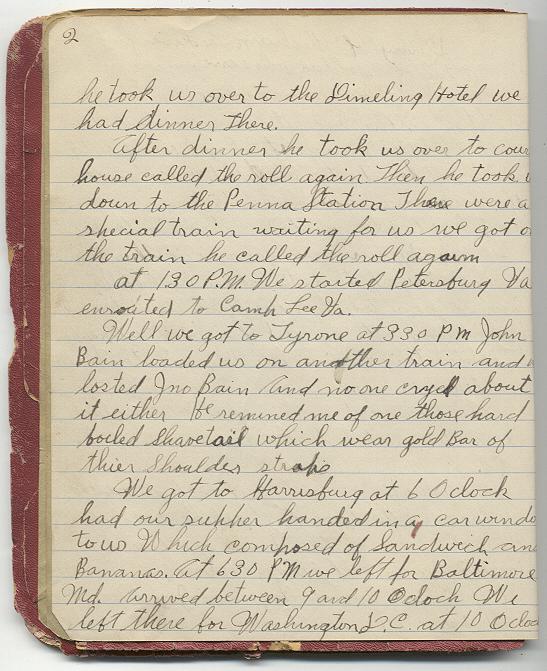 2
he took us over to the Dimeling Hotel we
had dinner There.
After dinner he took us over to cour
house called the roll again. Then he took
down to the Penna Station There were a
special train waiting for us we got o
the train he called the roll again
at 130 P.M. We started Petersburg Va
enrouted to Camp Lee Va.
Well we got to Tyrone at 330 PM John
Bain loaded us on another train and
losted Jno Bain and no one cryed about
it either he remined me of one those hard
boiled Shavetail which wear gold Bar of
thier Shoulder straps
We got to Harrisburg at 6 Oclock
had our supper handed in a car windo
to us Which composed of Sandwich an
Bananas. At 630 PM we left for Baltimore
Md. arrived between 9 and 10 Oclock We
left there for Washington D.C. at 10 Ocloc